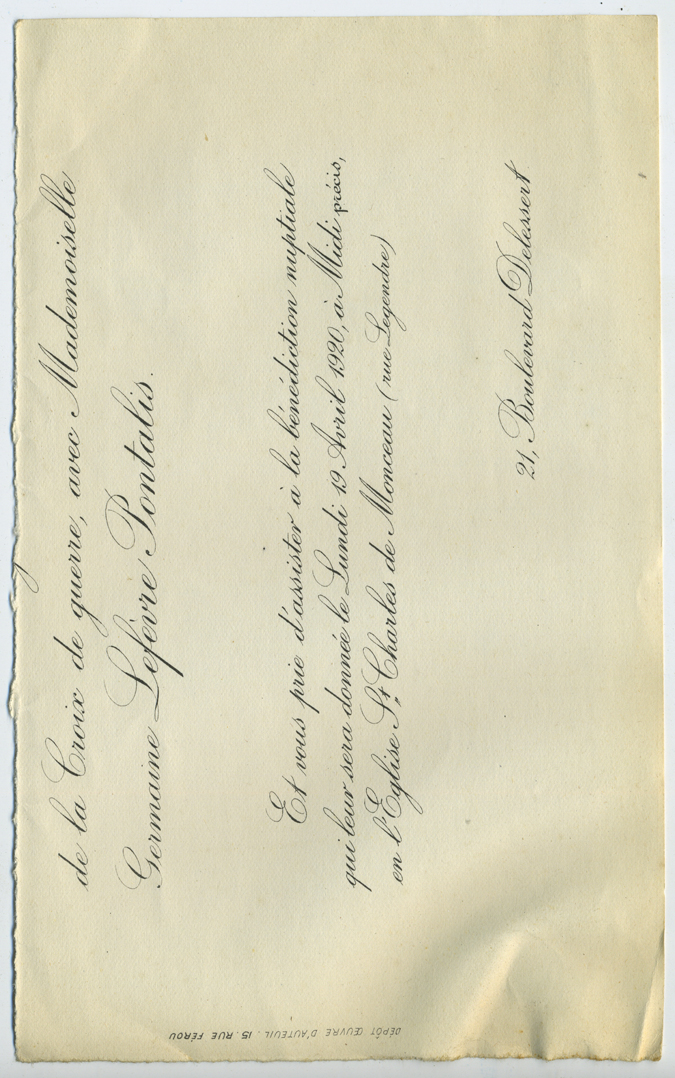 de la Croix de guerre, avec Mademoiselle
Germaine Lefèvre Pontalis.
Et vous prie d'assister à la bénédiction nuptiale
qui leur sera donnée le Lundi 19 Avril 1920, à Midi précis,
en l'Eglise St Charles de Monceau (rue Legendre)
21, Boulevard Delessert
DÉPÔT ŒUVRE D'AUTEUIL. 15. RUE FÉROU